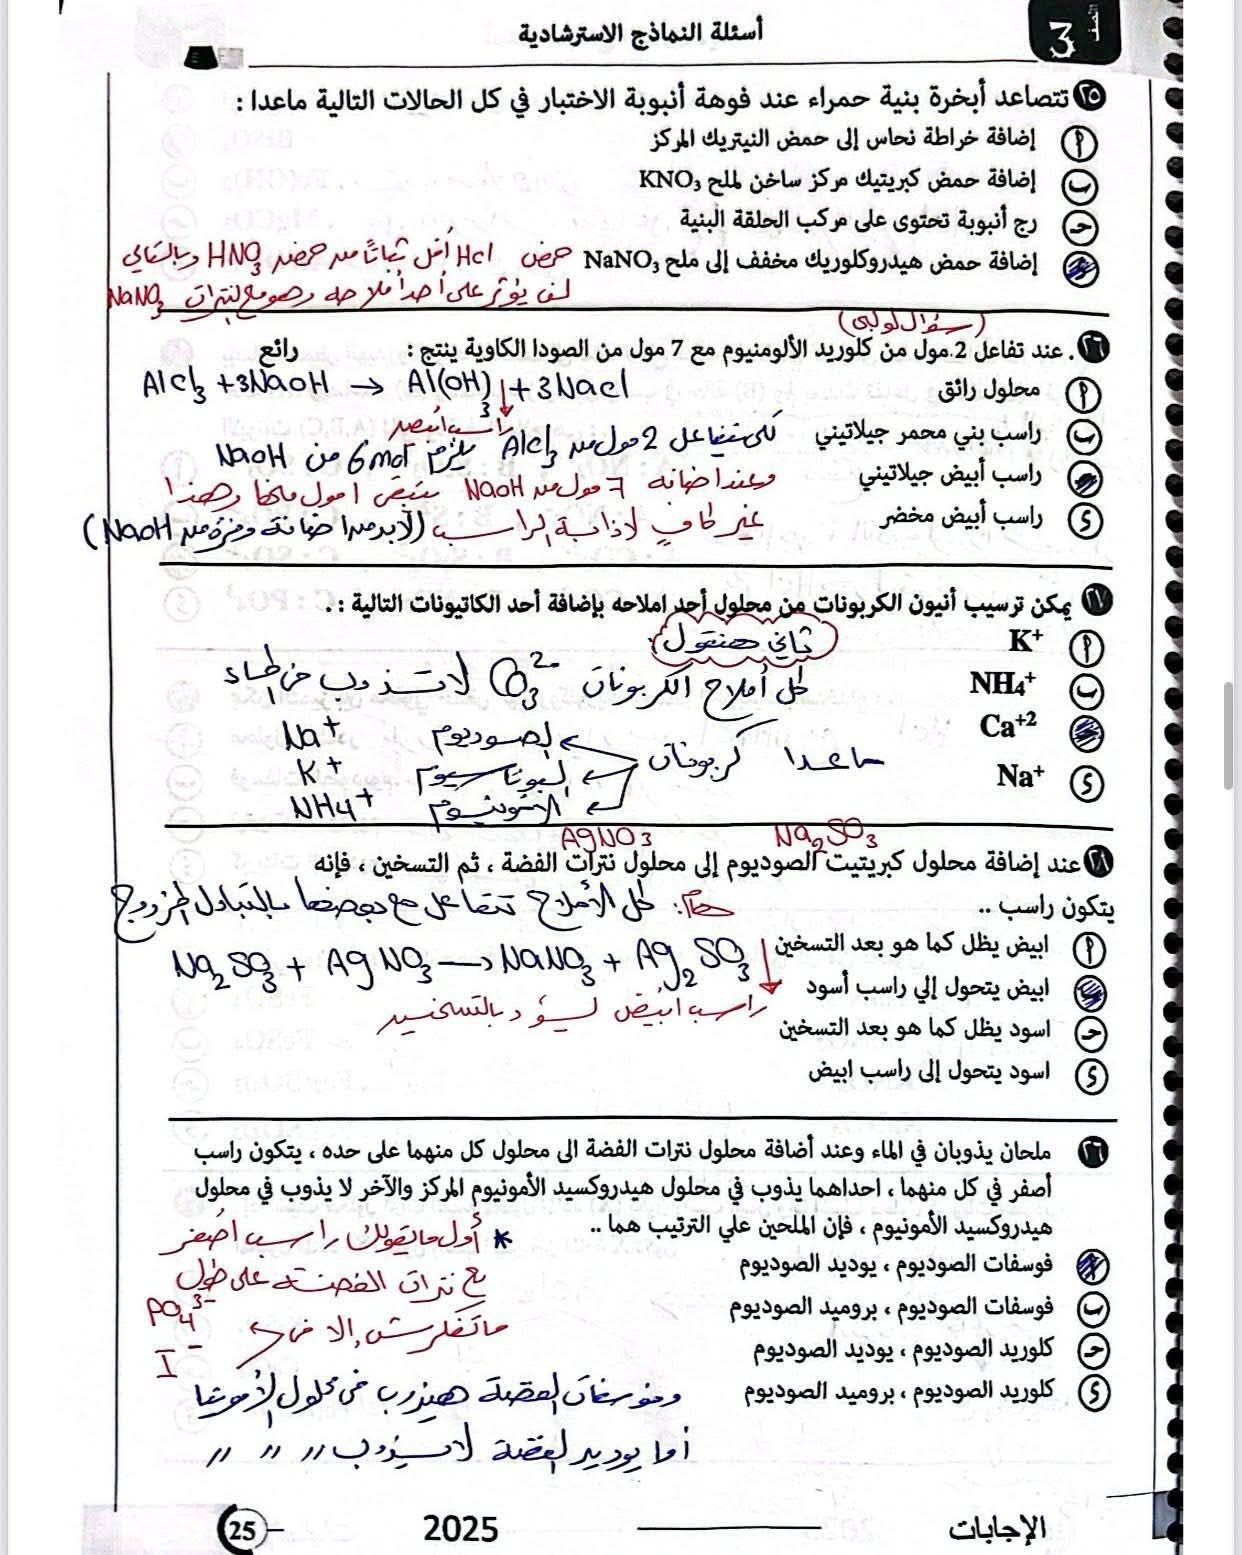 أسئلة النماذج الاسترشادية
الصف
٢٥ تتصاعد أبخرة بنية حمراء عند فوهة أنبوبة الاختبار في كل الحالات التالية ماعدا :
أ إضافة خراطة نحاس إلى حمض النيتريك المركز
ب إضافة حمض كبريتيك مركز ساخن لملح KNO₃
ج رج أنبوبة تحتوى على مركب الحلقة البنية
د إضافة حمض هيدروكلوريك مخفف إلى ملح NaNO₃
حمض Hcl أقل ثباتاً من حمض HNO₃ وبالتالي
لن يؤثر على أحد أملاحه وهو ملح نترات NaNO₃
(سؤال لولبي)
٢٦ . عند تفاعل 2.مول من كلوريد الألومنيوم مع 7 مول من الصودا الكاوية ينتج : رائع
أ محلول رائق
AlCl₃ + 3NaOH → Al(OH)₃↓ + 3Nacl
راسب أبيض
ب راسب بني محمر جيلاتيني
لكى يتفاعل 2 مول من AlCl₃ يلزم 6 mol من NaOH
ج راسب أبيض جيلاتيني
وعند اضافة 7 مول من NaOH يتبقى 1 مول منها وهذا
د راسب أبيض مخضر
غير كافي لاذابة الراسب (لابد من اضافة وفرة من NaOH)
٢٧ يمكن ترسيب أنيون الكربونات من محلول أحد املاحه بإضافة أحد الكاتيونات التالية :.
أ K⁺
تاني هنقول
ب NH₄⁺
كل أملاح الكربونات CO₃²⁻ لا تذوب في الماء
ج Ca⁺²
د Na⁺
ماعدا كربونات
الصوديوم Na⁺
البوتاسيوم K⁺
الأمونيوم NH₄⁺
Na₂SO₃ AgNO₃
٢٨ عند إضافة محلول كبريتيت الصوديوم إلى محلول نترات الفضة ، ثم التسخين ، فإنه
يتكون راسب ..
هام: كل الأملاح تتفاعل مع بعضها بالتبادل المزدوج
أ ابيض يظل كما هو بعد التسخين
Na₂SO₃ + AgNO₃ → NaNO₃ + Ag₂SO₃↓
ب ابيض يتحول إلي راسب أسود
راسب أبيض يسود بالتسخين
ج اسود يظل كما هو بعد التسخين
د اسود يتحول إلى راسب ابيض
٢٦ ملحان يذوبان في الماء وعند أضافة محلول نترات الفضة الى محلول كل منهما على حده ، يتكون راسب
أصفر في كل منهما ، احداهما يذوب في محلول هيدروكسيد الأمونيوم المركز والآخر لا يذوب في محلول
هيدروكسيد الأمونيوم ، فإن الملحين علي الترتيب هما ..
* أول مايقولك راسب أصفر
أ فوسفات الصوديوم ، يوديد الصوديوم
مع نترات الفضة على طول
ب فوسفات الصوديوم ، بروميد الصوديوم
ماتفكرش إلا في PO₄³⁻
I⁻
ج كلوريد الصوديوم ، يوديد الصوديوم
د كلوريد الصوديوم ، بروميد الصوديوم
وفوسفات الفضة هيذوب في محلول الأمونيا
أما يوديد الفضة لا يذوب 〃 〃 〃
الإجابات
2025
25